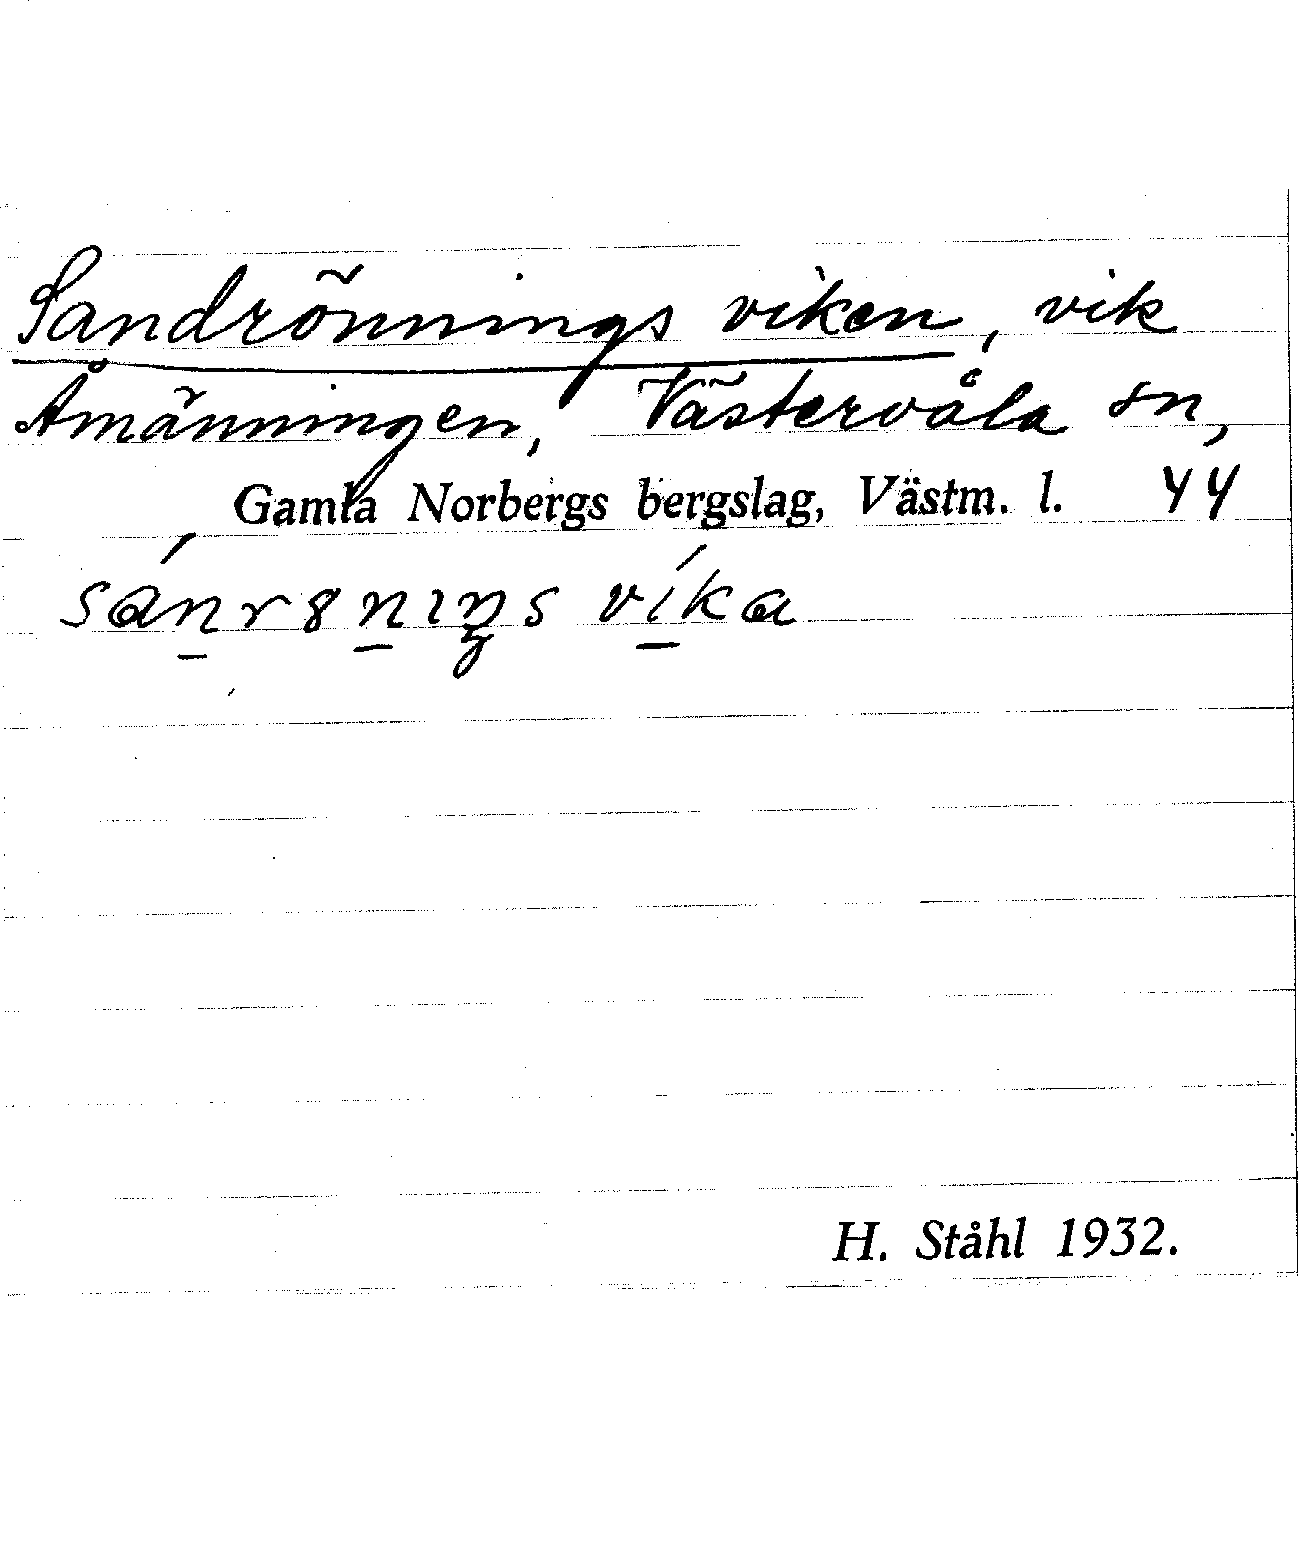 Sandrönnings viken, vik
Åmänningen, Västervåla sn,
Gamla Norbergs bergslag, Västm. l. 44
sánr8nıŋs víka
H. Ståhl 1932.